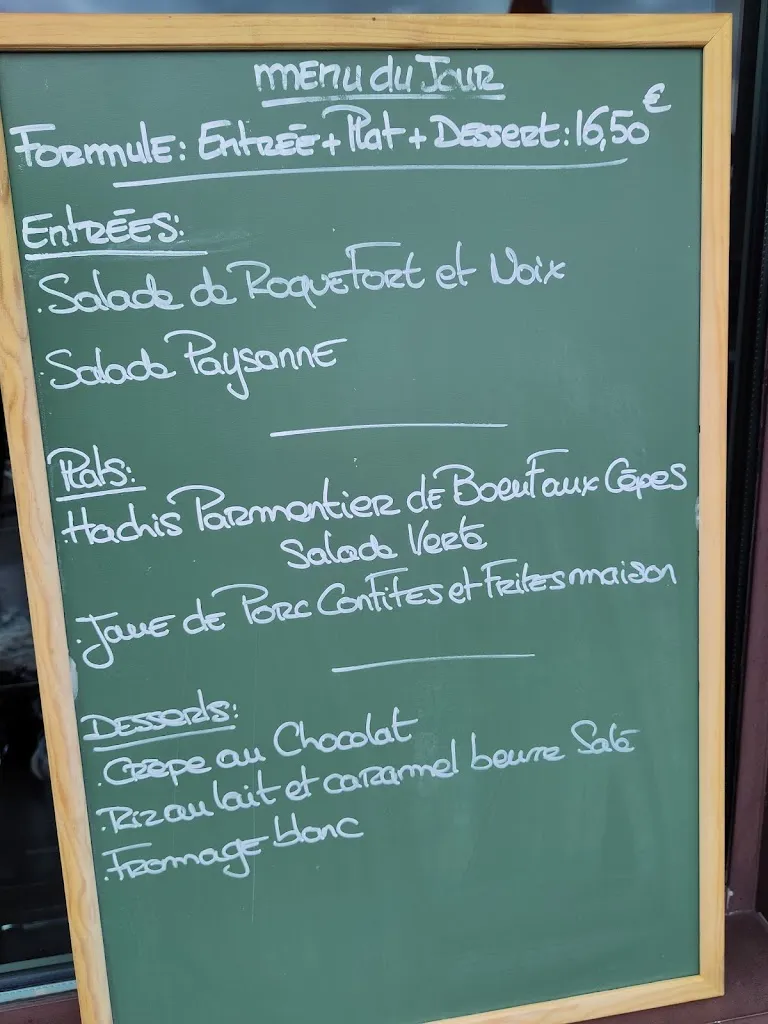 MENU du Jour
Formule: Entrée + Plat + Dessert: 16,50€
Entrées:
. Salade de Roquefort et Noix
. Salade Paysanne
Plats:
. Hachis Parmentier de Boeuf aux Cêpes
Salade Verte
. Joue de Porc Confites et Frites maison
Desserts:
. Crêpe au Chocolat
. Riz au lait et caramel beurre Salé
. Fromage blanc